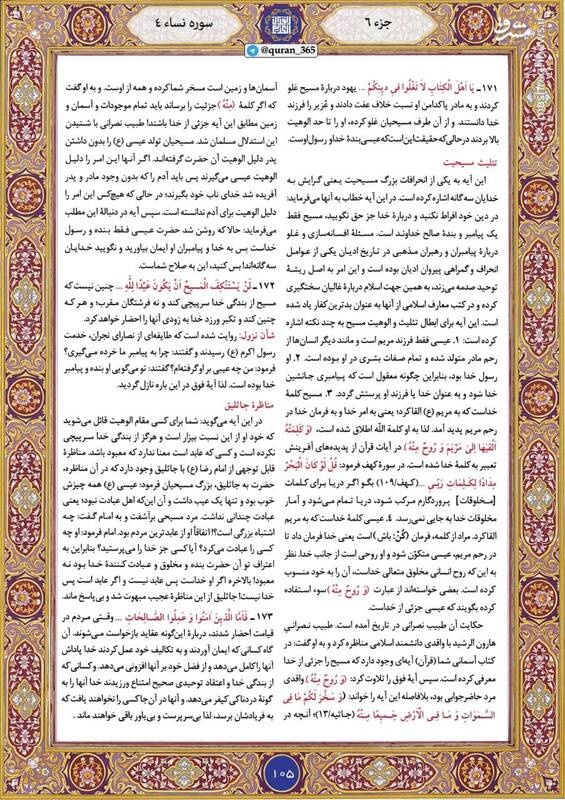 جزء ۶
سوره نساء ۴
@quran_365
مشرق
۱۷۱ـ یَا أَهْلَ الْکِتَابِ لَا تَغْلُوا فِی دِینِکُمْ ... یهود دربارهٔ مسیح غلو
کردند و به مادر پاکدامن او نسبت خلاف عفت دادند و عُزیر را فرزند
خدا دانستند. و از آن طرف مسیحیان غلو کرده، او را تا حد الوهیت
بالا بردند در حالی که حقیقت این است که عیسی بندهٔ خدا و رسول اوست.
تثلیث مسیحیت
این آیه به یکی از انحرافات بزرگ مسیحیت یعنی گرایش به
خدایان سه گانه اشاره کرده است. در این آیه خطاب به آنها می‌فرماید:
در دین خود افراط نکنید و دربارهٔ خدا جز حق نگویید، مسیح فقط
یک پیامبر و بندهٔ صالح خداوند است. مسئلهٔ افسانه‌سازی و غلو
دربارهٔ پیامبران و رهبران مذهبی در تاریخ ادیان یکی از عوامل
انحراف و گمراهی پیروان ادیان بوده است و این امر به اصل ریشهٔ
توحید صدمه می‌زند، به همین جهت اسلام دربارهٔ غالیان سختگیری
کرده و در کتب معارف اسلامی از آنها به عنوان بدترین کفار یاد شده
است. این آیه برای ابطال تثلیث و الوهیت مسیح به چند نکته اشاره
کرده است: ۱. عیسی فقط فرزند مریم است و مانند دیگر انسان‌ها از
رحم مادر متولد شده و تمام صفات بشری در او بوده است. ۲. او
رسول خدا بود، بنابراین چگونه معقول است که پیامبری جانشین
خدا شود و به عنوان خدا یا فرزند او پرستش گردد. ۳. مسیح کلمهٔ
خداست که به مریم (ع) القا کرد؛ یعنی به امر خدا و به فرمان خدا در
رحم مریم پدید آمد. لذا به او کلمة الله اطلاق شده است. (وَ کَلِمَتُهُ
أَلْقَیهَا إِلَىٰ مَرْیَمَ وَ رُوحٌ مِنْهُ) در آیات قرآن از پدیده‌های آفرینش
تعبیر به کلمهٔ خدا شده است. در سورهٔ کهف فرمود: قُلْ لَوْ کَانَ الْبَحْرُ
مِدَادًا لِکَلِمَاتِ رَبِّی ... (کهف/۱۰۹) بگو اگر دریا برای کلمات
[مخلوقات] پروردگارم مرکب شود، دریا تمام می‌شود و آمار
مخلوقات خدا به جایی نمی‌رسد. ۴. عیسی کلمهٔ خداست که به مریم
القا کرد. مراد از کلمه، فرمان (کُنْ: باش) است یعنی خدا فرمان داد تا
در رحم مریم، عیسی متکوّن شود و او روحی است از جانب خدا. نظر
به این که روح انسانی مخلوق متعالی خداست، آن را به خود منسوب
کرده است. بعضی خواسته‌اند از عبارت (وَ رُوحٌ مِنْهُ) سوء استفاده
کرده بگویند که عیسی جزئی از خداست.
حکایت آن طبیب نصرانی در تاریخ آمده است. طبیب نصرانیِ
هارون الرشید با واقدی دانشمند اسلامی مناظره کرد و به او گفت: در
کتاب آسمانی شما (قرآن) آیه‌ای وجود دارد که مسیح را جزئی از خدا
معرفی کرده است. سپس آیهٔ فوق را تلاوت کرد: (وَ رُوحٌ مِنْهُ) واقدی
مرد حاضرجوابی بود، بلافاصله این آیه را خواند: (وَ سَخَّرَ لَکُمْ مَا فِی
السَّمٰوَاتِ وَ مَا فِی الْأَرْضِ جَمِیعًا مِنْهُ) (جاثیه/۱۳)؛ آنچه در
آسمان‌ها و زمین است مسخر شما کرده و همه از اوست. و به او گفت
که اگر کلمهٔ (مِنْهُ) جزئیت را برساند باید تمام موجودات و آسمان و
زمین مطابق این آیه جزئی از خدا باشند! طبیب نصرانی با شنیدن
این استدلال مسلمان شد. مسیحیان تولد عیسی (ع) را بدون داشتن
پدر دلیل الوهیت آن حضرت گرفته‌اند. اگر آنها این امر را دلیل
الوهیت عیسی می‌گیرند پس باید آدم را که بدون وجود مادر و پدر
آفریده شد خدای ناب خود بگیرند؛ در حالی که هیچ‌کس این امر را
دلیل الوهیت برای آدم ندانسته است. سپس آیه در دنبالهٔ این مطلب
می‌فرماید: حالا که روشن شد حضرت عیسی فقط بنده و رسول
خداست بس به خدا و پیامبران او ایمان بیاورید و نگویید خدایان
سه‌گانه‌اند! بس کنید، این به صلاح شماست.
۱۷۲ـ لَنْ یَسْتَنْکِفَ الْمَسِیحُ أَنْ یَکُونَ عَبْدًا لِلَّهِ ... چنین نیست که
مسیح از بندگی خدا سرپیچی کند و نه فرشتگان مقرب؛ و هر که
چنین کند و تکبر ورزد خدا به زودی آنها را احضار خواهد کرد.
شأن نزول: روایت شده است که طایفه‌ای از نصارای نجران، خدمت
رسول اکرم (ع) رسیدند و گفتند: چرا به پیامبر ما خرده می‌گیری؟
فرمود: من چه عیبی بر او گرفته‌ام؟ گفتند: تو می‌گویی او بنده و پیامبر
خدا بوده است. لذا آیهٔ فوق در این باره نازل گردید.
مناظرهٔ جاثلیق
در این آیه می‌گوید: شما برای کسی مقام الوهیت قائل می‌شوید
که خود او از این نسبت بیزار است و هرگز از بندگی خدا سرپیچی
نکرده است و کسی که عابد است معنا ندارد که معبود باشد. مناظرهٔ
قابل توجهی از امام رضا (ع) با جاثلیق وجود دارد که در آن مناظره،
حضرت به جاثلیق، بزرگ مسیحیان فرمود: عیسی (ع) همه چیزش
خوب بود و تنها یک عیب داشت و آن این‌که اهل عبادت نبود؛ یعنی
عبادت چندانی نداشت. مرد مسیحی برآشفت و به امام گفت: چه
اشتباه بزرگی است؟! اتفاقاً او از عابدترین مردم بود. امام فرمود: او چه
کسی را عبادت می‌کرد؟ آیا کسی جز خدا را می‌پرستید؟ بنابراین به
اعتراف تو آن حضرت بنده و مخلوق و عبادت‌کنندهٔ خدا بود نه
معبود! بالاخره اگر او خداست پس عابد نیست و اگر عابد است پس
خدا نیست! جاثلیق از این مناظرهٔ عجیب مبهوت شد و بی‌پاسخ ماند.
۱۷۳ـ فَأَمَّا الَّذِینَ آمَنُوا وَ عَمِلُوا الصَّالِحَاتِ ... وقتی مردم در
قیامت احضار شدند، دربارهٔ این‌گونه عقاید بازخواست می‌شوند. آن
گاه کسانی که ایمان آوردند و به تکالیف خود عمل کردند خدا پاداش
آنها را کامل می‌دهد و از فضل خود بر آنها افزونی می‌دهد. و کسانی که
از بندگی خدا و اعتقاد توحیدی صحیح امتناع ورزیدند خدا آنها را به
گونهٔ دردناکی کیفر می‌دهد. و آنها در آن‌جا کسی را نخواهند یافت که
به فریادشان برسد، لذا بی‌سرپرست و بی‌یاور باقی خواهند ماند.
۱۰۵